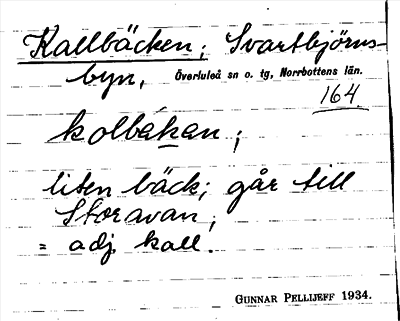 Kallbäcken; Svartbjörns-
byn, Överluleå sn o. tg, Norrbottens län.
164
kolbäkan;
liten bäck; går till
Storavan;
= adj. kall.
GUNNAR PELLIJEFF 1934.